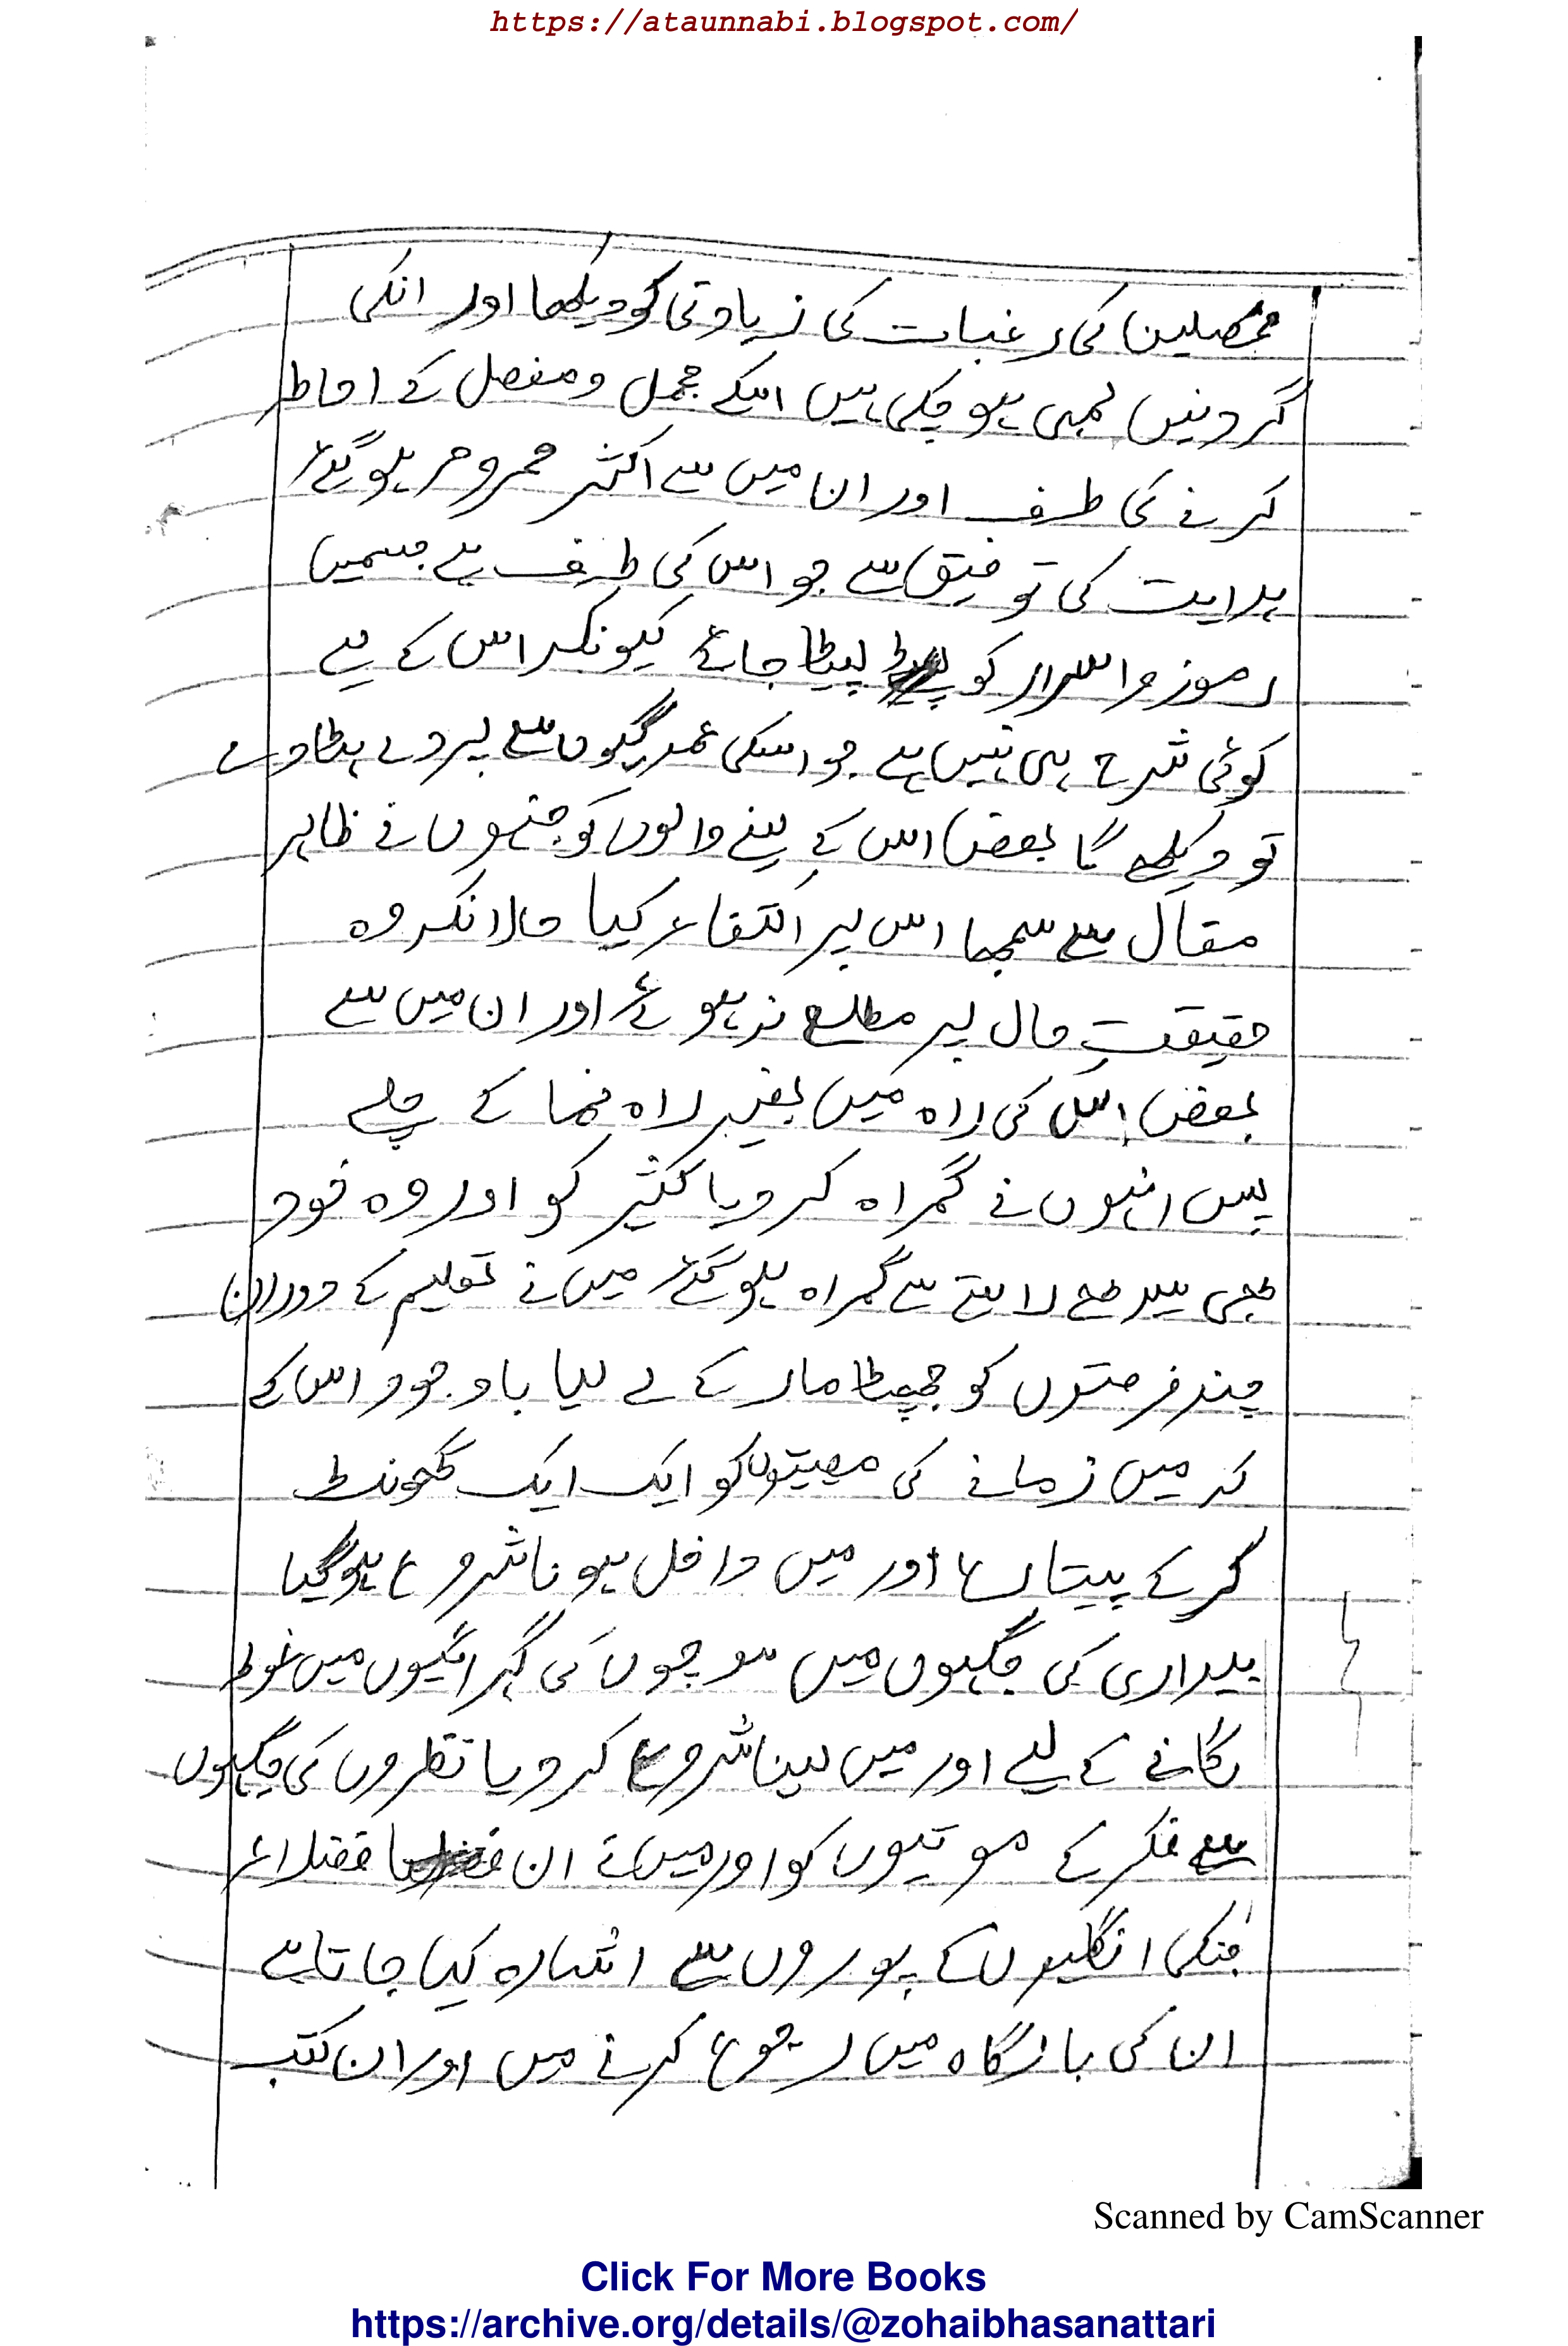 https://ataunnabi.blogspot.com/
محصلین کی رغبات کی زیادتی کو دیکھا اور انکی
گردنیں لمبی ہو چکی ہیں اسکے مجمل و مفصل کے احاطہ
کرنے کی طرف اور ان میں سے اکثر محروم ہو گئے
ہدایت کی توفیق سے جو اس کی طرف ہے جسمیں
رموز و اسرار کو لپیٹا جائے کیونکہ اس کے لیے
کوئی شرح ہی نہیں ہے جو اسکی عمدگیوں سے پردے ہٹا دے
تو دیکھے گا بعض اس کے لینے والوں کو جنہوں نے ظاہر
مقال سے سمجھا اس پر اکتفاء کیا حالانکہ وہ
حقیقتِ حال پر مطلع نہ ہوئے اور ان میں سے
بعض اس کی راہ میں بغیر راہ نما کے چلے
پس انہوں نے گمراہ کر دیا کثیر کو اور وہ خود
بھی سیدھے راستے سے گمراہ ہو گئے میں نے تعلیم کے دوران
چند فرصتوں کو جھپٹا مار کے لے لیا باوجود اس کے
کہ میں زمانے کی مصیبتوں کو ایک ایک گھونٹ
کر کے پیتا رہا اور میں داخل ہونا شروع ہو گیا
بیداری کی جگہوں میں سوچوں کی گہرائیوں میں غوطہ
لگانے کے لیے اور میں لینا شروع کر دیا نظروں کی جگہوں
سے فکر کے موتیوں کو اور میں نے ان فضلاء
جنکی انگلیوں کے پوروں سے اشارہ کیا جاتا ہے
ان کی بارگاہ میں رجوع کرنے میں اور ان کتب
Scanned by CamScanner
Click For More Books
https://archive.org/details/@zohaibhasanattari